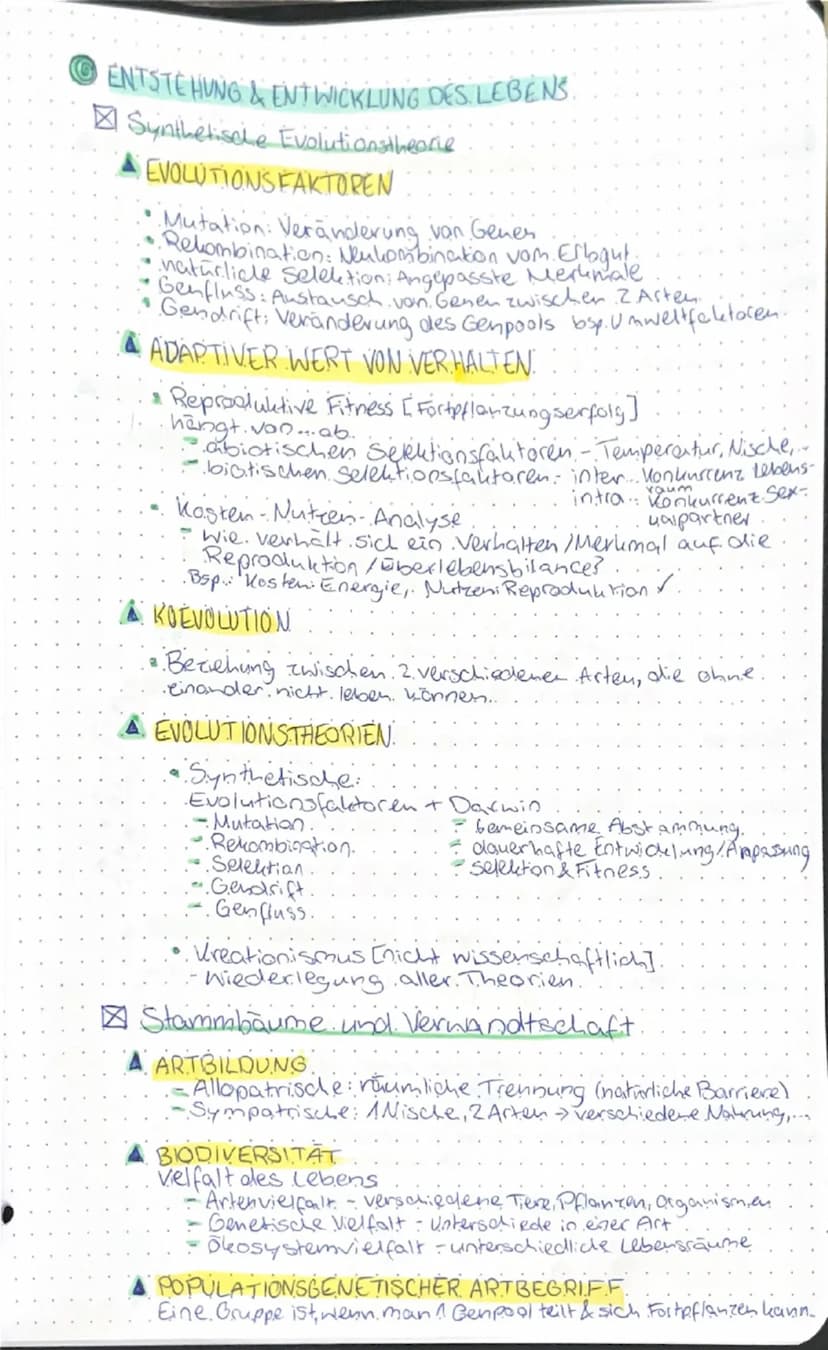 ENTSTEHUNG & ENTWICKLUNG DES LEBENS
Synthetische Evolutionstheorie
EVOLUTIONSFAKTOREN
• Mutation: Veränderung von Genen
• Rekombination: Neukombination vom Erbgut
• natürliche Selektion: Angepasste Merkmale
• Genfluss: Austausch von Genen zwischen 2 Arten
• Gendrift: Veränderung des Genpools bsp. Umweltfaktoren
ADAPTIVER WERT VON VERHALTEN
• Reproduktive Fitness [Fortpflanzungserfolg]
hängt von... ab
- abiotischen Selektionsfaktoren - Temperatur, Nische,..
- biotischen Selektionsfaktoren - inter.. Konkurrenz Lebens-
raum
intra.. Konkurrenz Sex-
ualpartner
• Kosten-Nutzen-Analyse
- Wie verhält sich ein Verhalten/Merkmal auf die
Reproduktion/Überlebensbilance?
Bsp.: Kosten: Energie, Nutzen: Reproduktion ✓
KOEVOLUTION
• Beziehung zwischen 2 verschiedenen Arten, die ohne
einander nicht leben können.
EVOLUTIONSTHEORIEN
• Synthetische:
Evolutionsfaktoren + Darwin
- Mutation - Gemeinsame Abstammung
- Rekombination - dauerhafte Entwicklung/Anpassung
- Selektion - Selekton & Fitness
- Gendrift
- Genfluss
• Kreationismus [nicht wissenschaftlich]
- Wiederlegung aller Theorien
Stammbäume und Verwandtschaft
ARTBILDUNG
- Allopatrische: räumliche Trennung (natürliche Barriere)
- Sympatrische: 1 Nische, 2 Arten → verschiedene Nahrung,...
BIODIVERSITÄT
Vielfalt des Lebens
- Artenvielfalt - verschiedene Tiere, Pflanzen, Organismen
- Genetische Vielfalt - Unterschiede in einer Art
- Ökosystemvielfalt - unterschiedliche Lebensräume
POPULATIONSGENETISCHER ARTBEGRIFF
Eine Gruppe ist, wenn man 1 Genpool teilt & sich Fortpflanzen kann.